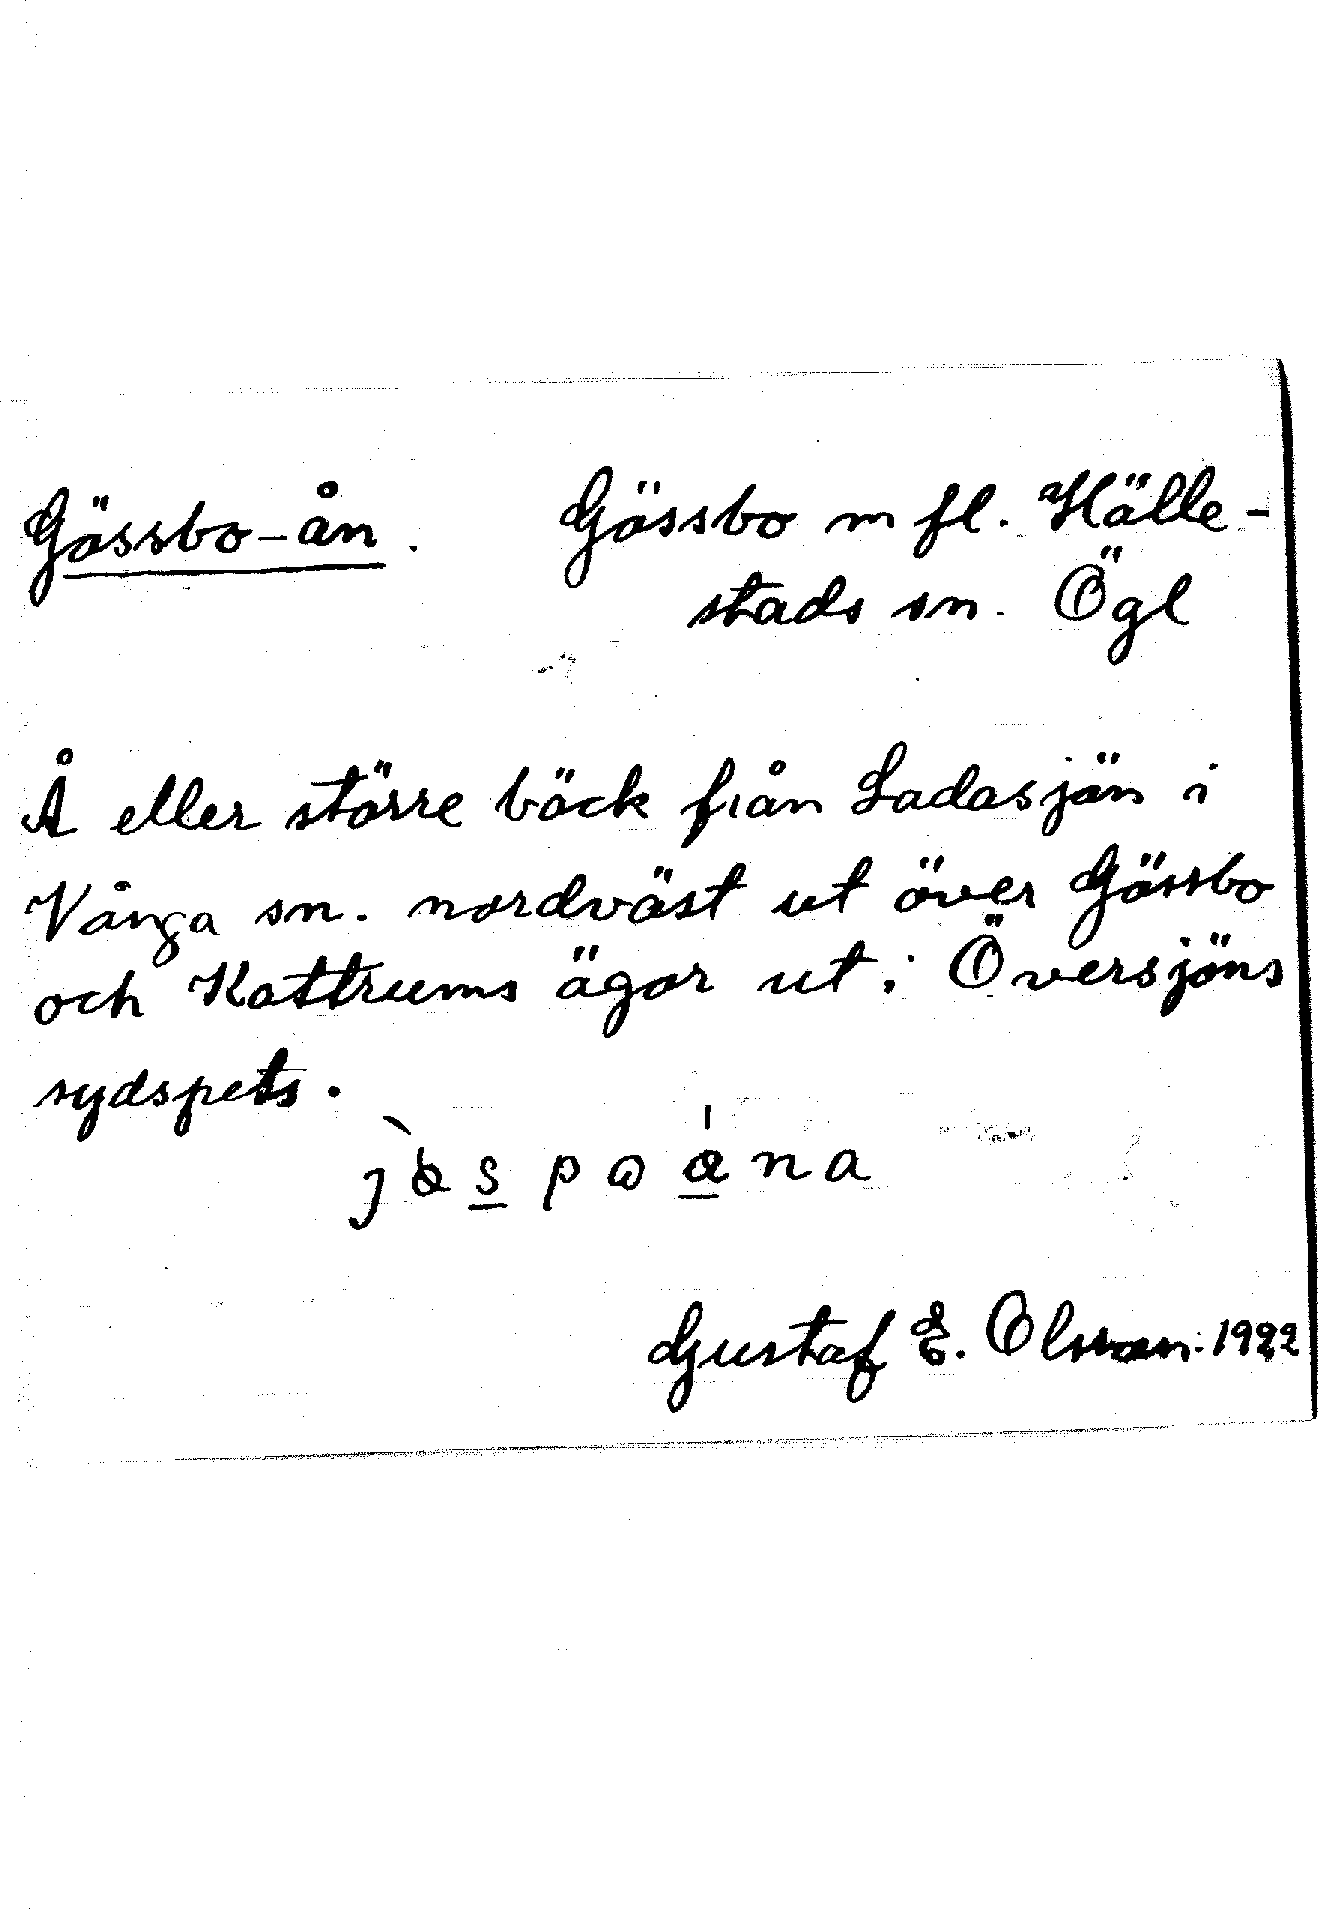 Gössbo-ån. Gössbo m fl. Hälle-
stads sn. Ögl
Å eller större bäck från Ladasjön i
Vånga sn. nordväst ut över Gössbo
och Kattrums ägor ut i Översjöns
sydspets.
Gustaf E. Olsson. 1922